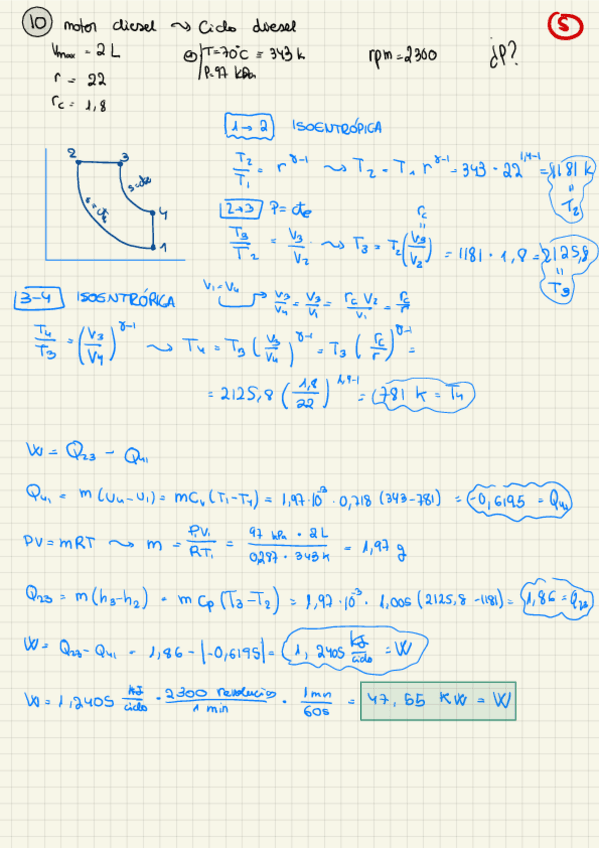 10 motor diesel ⇝ Ciclo diesel
5
Vmax = 2 L
T = 70°C = 343 k
rpm = 2300
¿P?
r = 22
P = 97 kPa
rc = 1,8
1→2 ISOENTRÓPICA
T2/T1 = r^γ-1 ⇝ T2 = T1 r^γ-1 = 343 · 22^1,4-1 = 1181 k = T2
2 3 4 1
s=cte
s=cte
2→3 P = cte
T3/T2 = V3/V2 ⇝ T3 = T2 (V3/V2) = 1181 · 1,8 = 2125,8 = T3
rc
3-4 ISOENTRÓPICA
V1 = V4 → V3/V4 = V3/V1 = rc V2/V1 = rc/r
T4/T3 = (V3/V4)^γ-1 ⇝ T4 = T3 (V3/V4)^γ-1 = T3 (rc/r)^γ-1 =
= 2125,8 (1,8/22)^1,4-1 = 781 k = T4
W = Q23 - Q41
Q41 = m(u4-u1) = mCv (T1-T4) = 1,97·10^-3 · 0,718 (343-781) = -0,6195 = Q41
PV = mRT ⇝ m = P1V1/RT1 = 97 kPa · 2L/0,287 · 343k = 1,97 g
Q23 = m(h3-h2) = m Cp (T3-T2) = 1,97·10^-3 · 1,005 (2125,8-1181) = 1,86 = Q23
W = Q23 - Q41 = 1,86 - |-0,6195| = 1,2405 kJ/ciclo = W
W = 1,2405 kJ/ciclo · 2300 revolucios/1 min · 1 min/60s = 47,55 KW = W